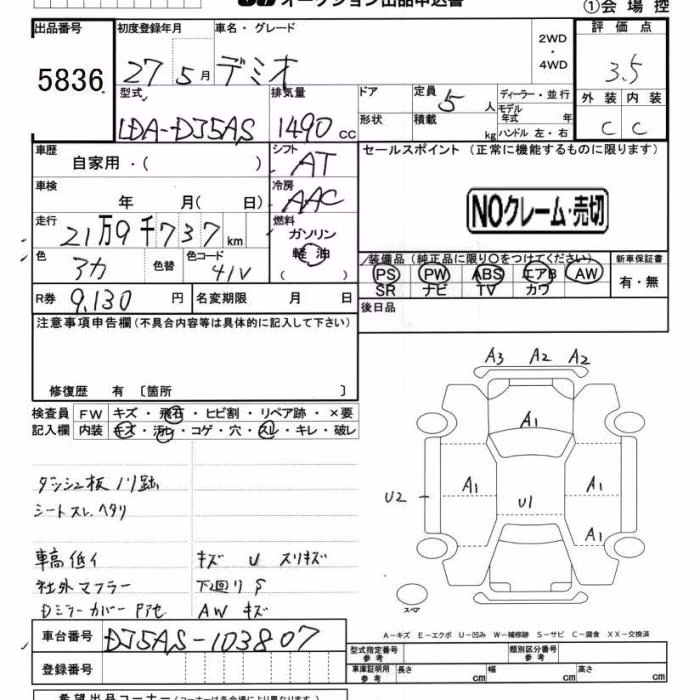 オークション出品申込書
①会場控
出品番号 初度登録年月 車名・グレード 2WD・4WD 評価点
5836 27年5月 デミオ 3.5
型式 排気量 ドア 定員 5人 ディーラー・並行 外装 内装
LDA-DJ5AS 1490cc 形状 積載 kg モデル年式 年 ハンドル 左・右 C C
車歴 自家用・( ) シフト AT セールスポイント (正常に機能するものに限ります)
車検 年 月( 日) 冷房 AAC NOクレーム・売切
走行 21万9千737km 燃料 ガソリン 軽油 ( )
色 アカ 色替 色コード 41V 装備品(純正品に限り○をつけてください) 新車保証書
PS PW ABS エアB AW 有・無
SR ナビ TV カワ
R券 9,130円 名変期限 月 日 後日品
注意事項申告欄(不具合内容等は具体的に記入して下さい)
修復歴 有 〔箇所 〕
検査員記入欄 FW キズ・飛石・ヒビ割・リペア跡・×要
内装 キズ・汚レ・コゲ・穴・スレ・キレ・破レ
A3 A2 A2
A1
ダッシュ板 ノリ跡
シートスレ、ヘタリ
U2 A1 U1 A1
A1
車高低イ キズ U スリキズ
社外マフラー 下回り S
Dミラーカバー P社 AW キズ
スペア
A-キズ E-エクボ U-凹み W-補修跡 S-サビ C-腐食 XX-交換済
車台番号 DJ5AS-103807
型式指定番号 参考 類別区分番号 参考
登録番号 車庫証明用 参考 長さ cm 幅 cm 高さ cm
希望出品コーナー(コーナーは各会場により異なります)